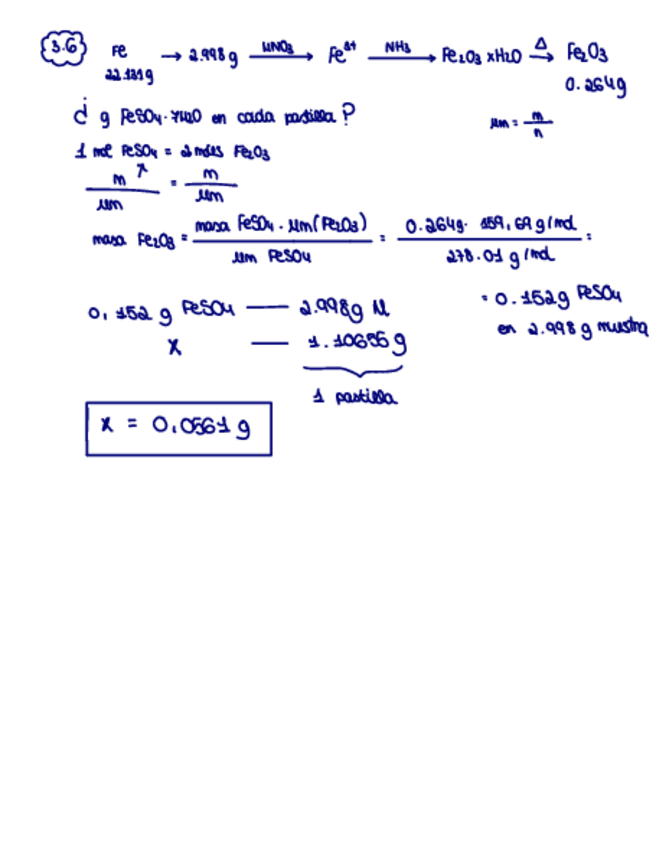 3.6 Fe → 2.998g HNO3 → Fe3+ NH3 → Fe2O3 xH2O Δ → Fe2O3
22.131g 0.264g
¿ g FeSO4·7H2O en cada pastilla? Mm = m/n
1 mol FeSO4 = 2 moles Fe2O3
m/Mm = m/Mm
masa Fe2O3 = masa FeSO4 · Mm(Fe2O3) / Mm FeSO4 = 0.264g · 159,69 g/mol / 278.01 g/mol =
= 0.152g FeSO4
en 2.998g muestra
0,152 g FeSO4 — 2.998g M
x — 1.10655 g
1 pastilla
x = 0.0561 g